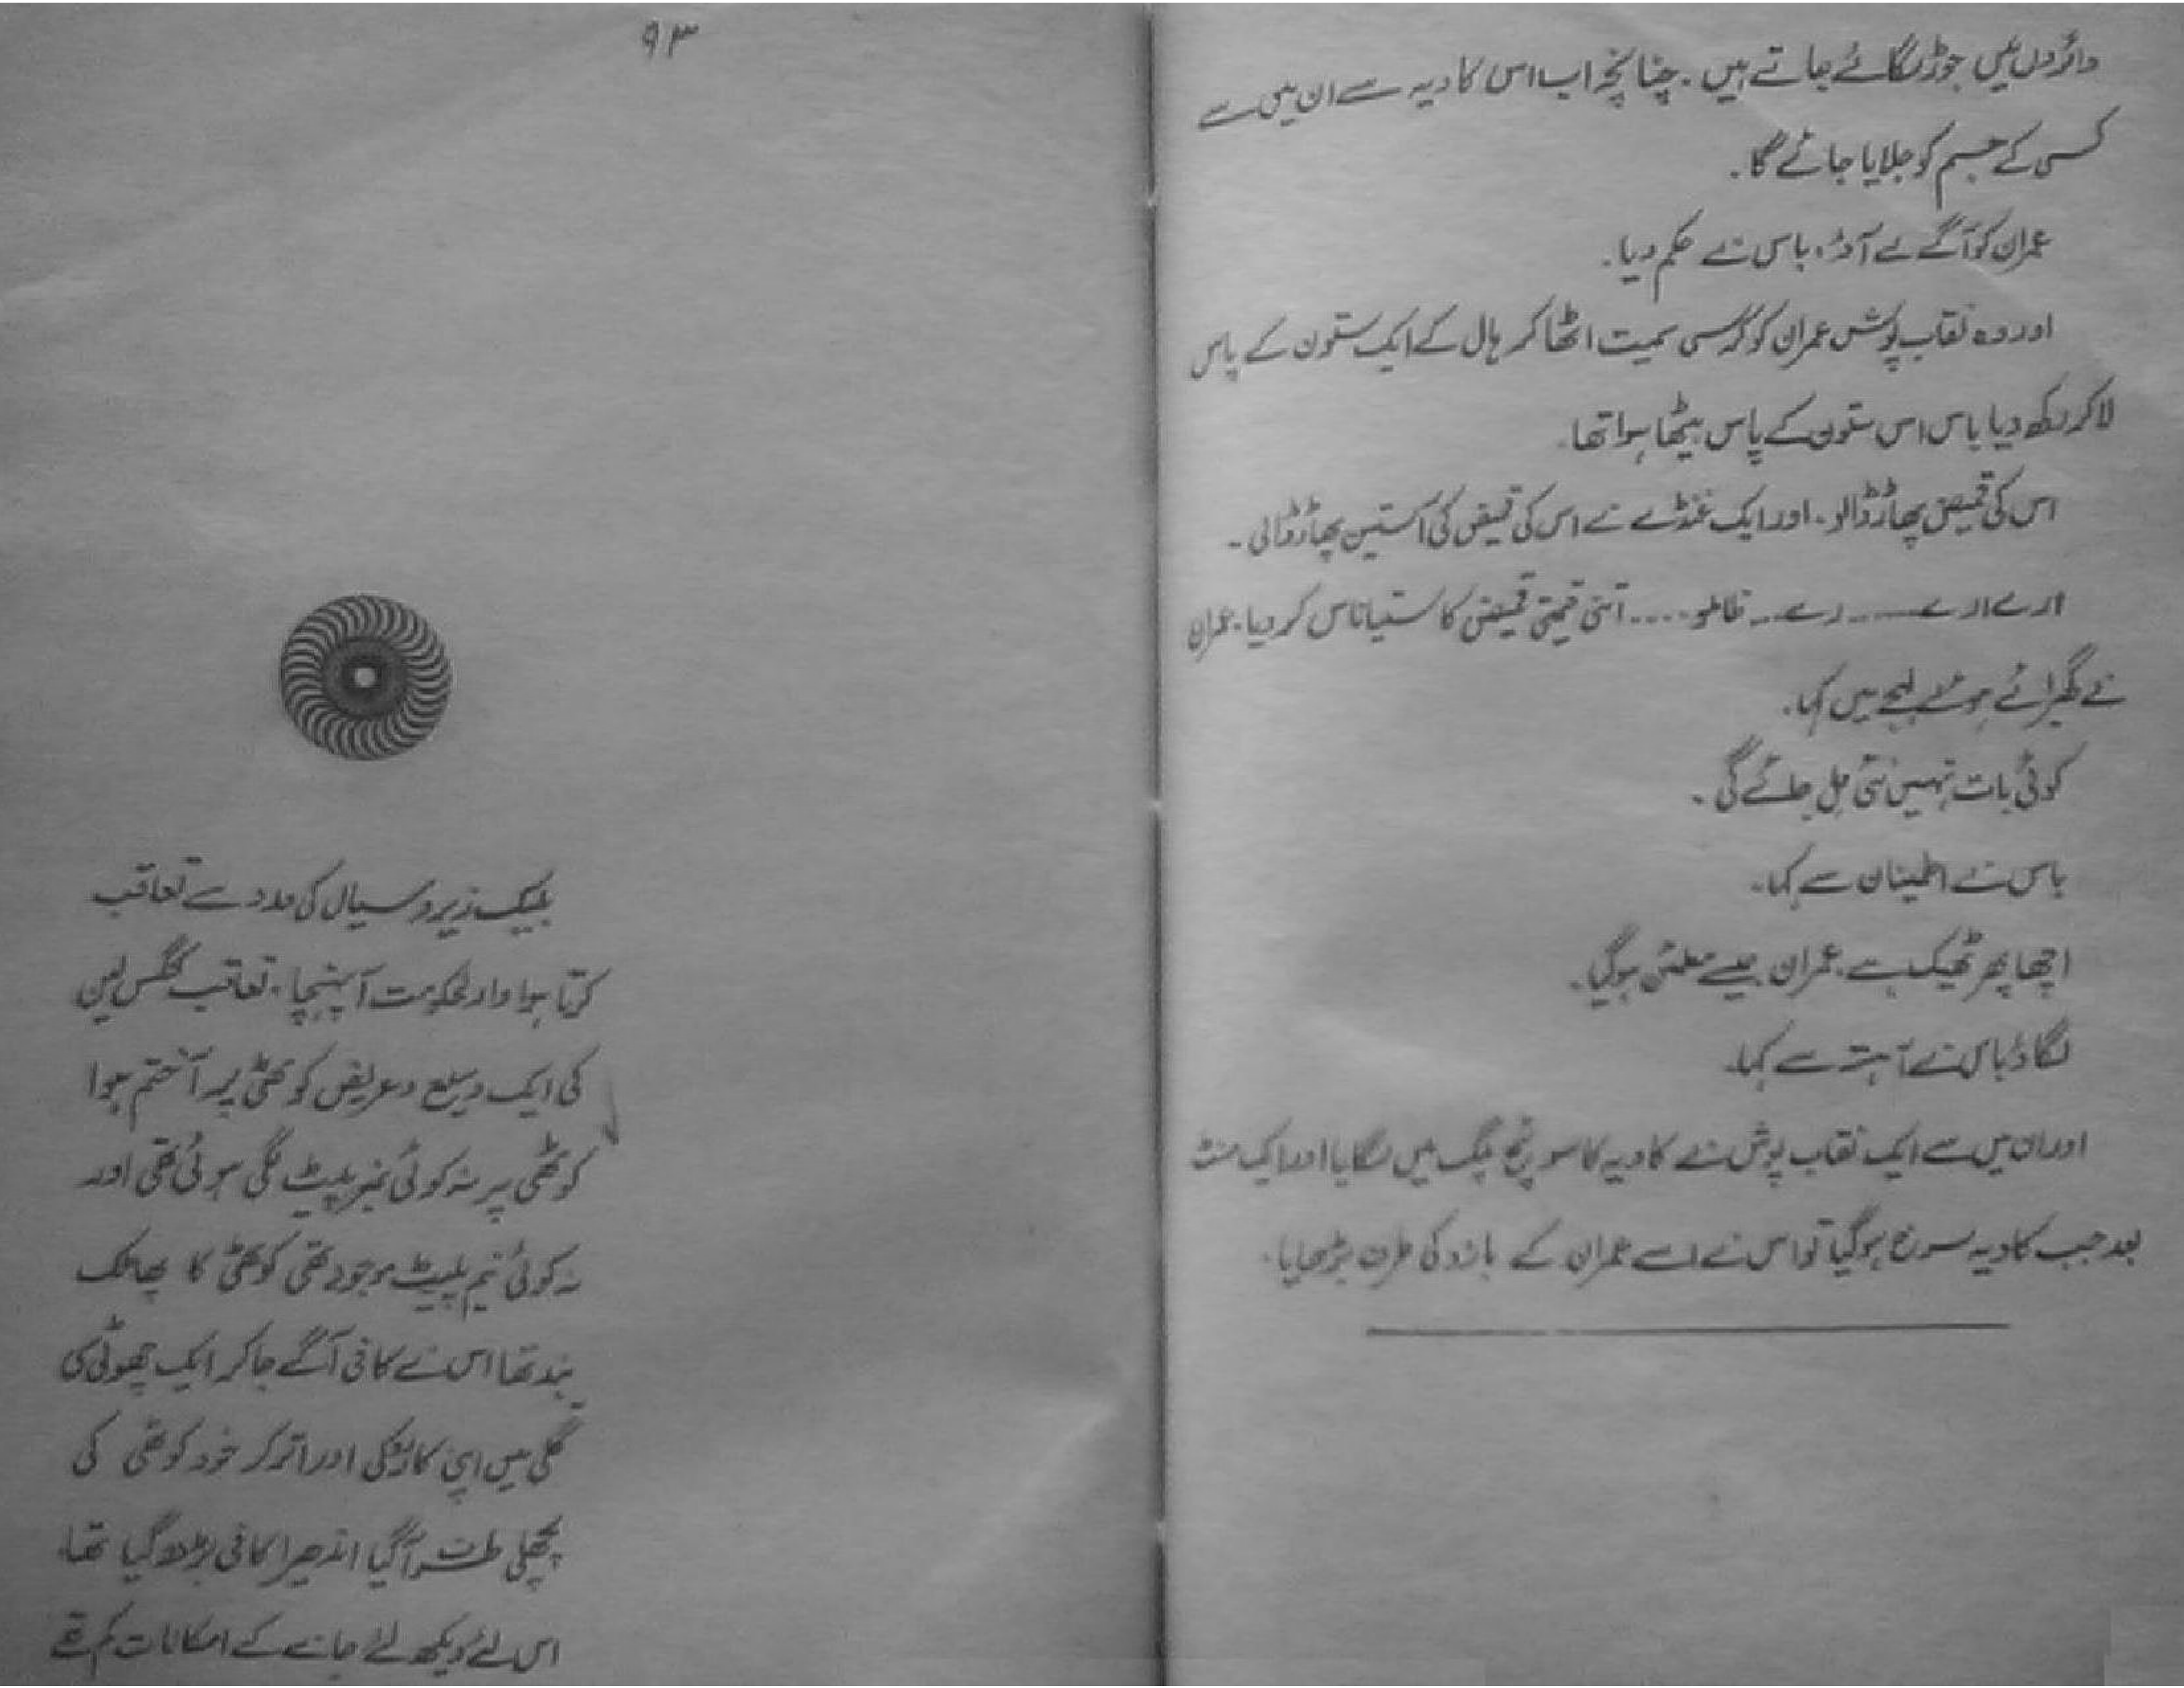 دائروں میں جوڑ لگائے جاتے ہیں۔ چنانچہ اب اس کاویہ سے ان میں سے
کسی کے جسم کو جلایا جائے گا۔
عمران کو آگے لے آؤ، باس نے حکم دیا۔
اور وہ نقاب پوش عمران کو کرسی سمیت اٹھا کر ہال کے ایک ستون کے پاس
لا کر رکھ دیا باس اس ستون کے پاس بیٹھا ہوا تھا۔
اس کی قمیض پھاڑ ڈالو۔ اور ایک غنڈے نے اس کی قمیض کی آستین پھاڑ ڈالی۔
ارے ارے ۔۔۔۔ رے ۔۔ ظالمو .... اتنی قیمتی قمیض کا ستیاناس کر دیا۔ عمران
نے گھبرائے ہوئے لہجے میں کہا۔
کوئی بات نہیں نئی مل جائے گی۔
باس نے اطمینان سے کہا۔
اچھا پھر ٹھیک ہے۔ عمران جیسے مطمئن ہو گیا۔
لگاؤ باس نے آہستہ سے کہا۔
اور ان میں سے ایک نقاب پوش نے کاویہ کا سوئچ پلگ میں لگایا اور ایک منٹ
بعد جب کاویہ سرخ ہو گیا تو اس نے اسے عمران کے بازو کی طرف بڑھایا۔
۹۳
بلیک زیرو سیال کی مدد سے تعاقب
کرتا ہوا دارلحکومت آ پہنچا۔ تعاقب کنگس لین
کی ایک وسیع و عریض کوٹھی پر آ ختم ہوا
کوٹھی پر نہ کوئی نمبر پلیٹ لگی ہوئی تھی اور
نہ کوئی نیم پلیٹ موجود تھی کوٹھی کا پھاٹک
بند تھا اس نے کافی آگے جا کر ایک چھوٹی سی
گلی میں اپنی کار روکی اور اتر کر خود کوٹھی کی
پچھلی طرف آ گیا اندھیرا کافی بڑھ گیا تھا۔
اس لئے دیکھ لئے جانے کے امکانات کم تھے